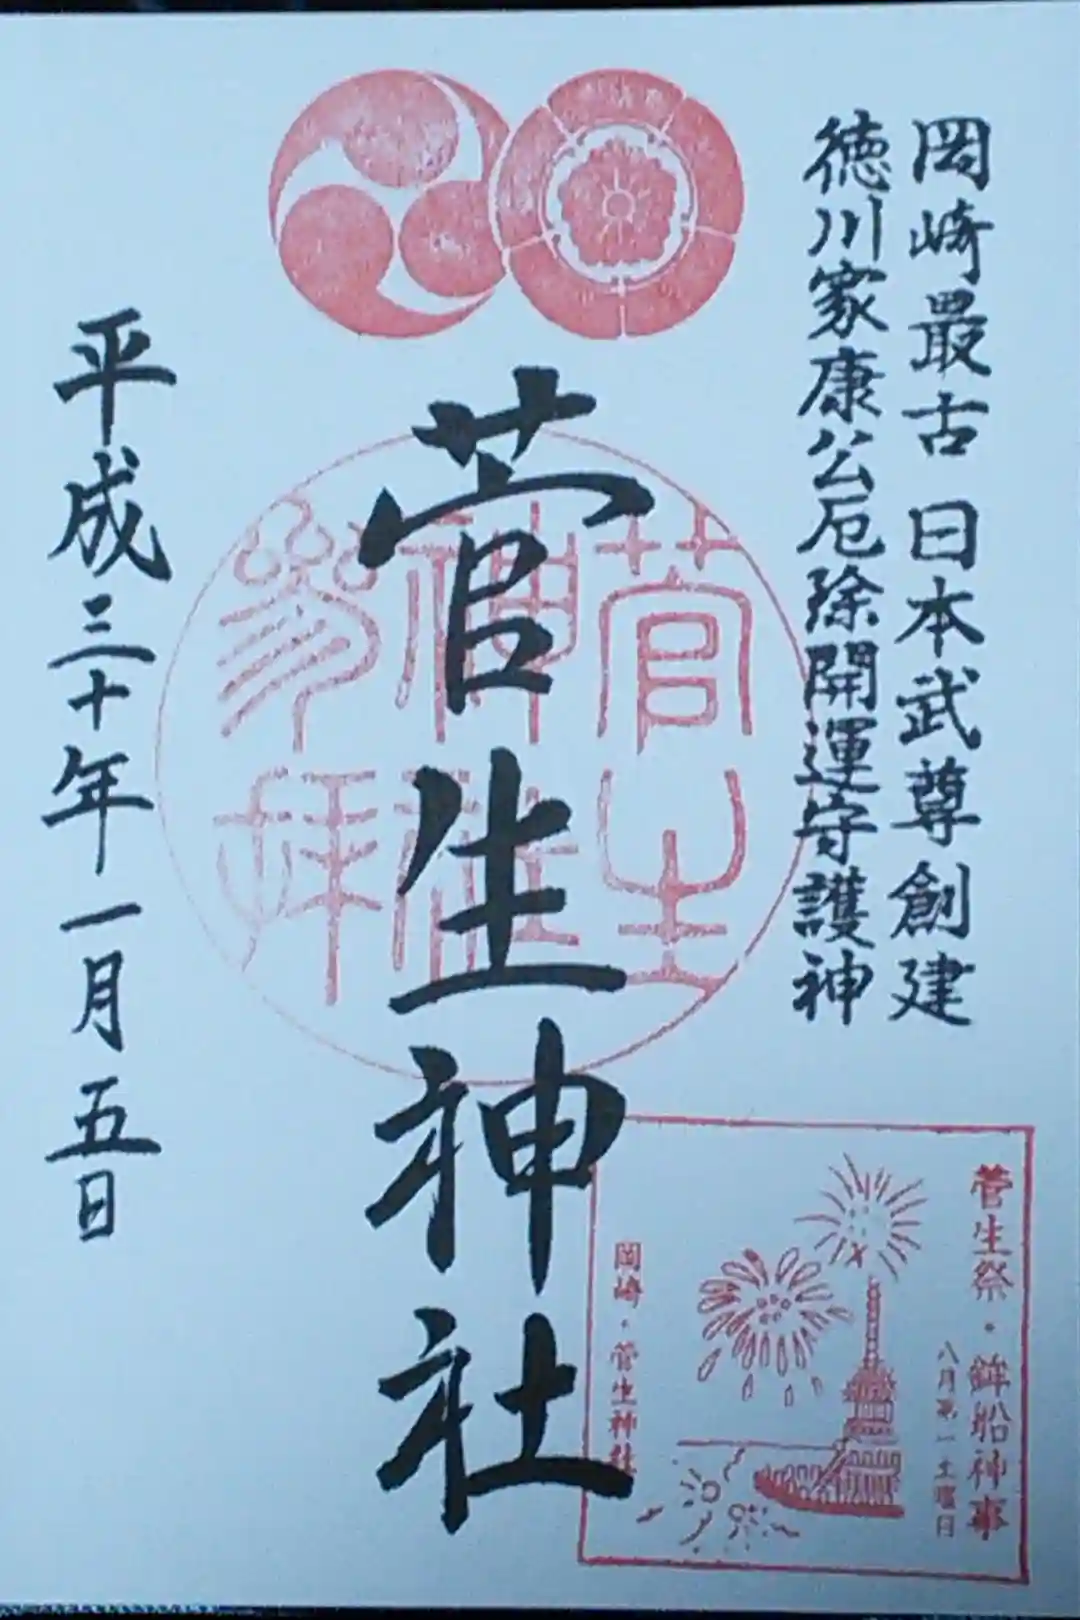 岡崎最古 日本武尊創建
徳川家康公厄除開運守護神
菅生神社
菅生
神社
参拝
平成三十年一月五日
菅生祭・鉾船神事
八月第一土曜日
岡崎・菅生神社